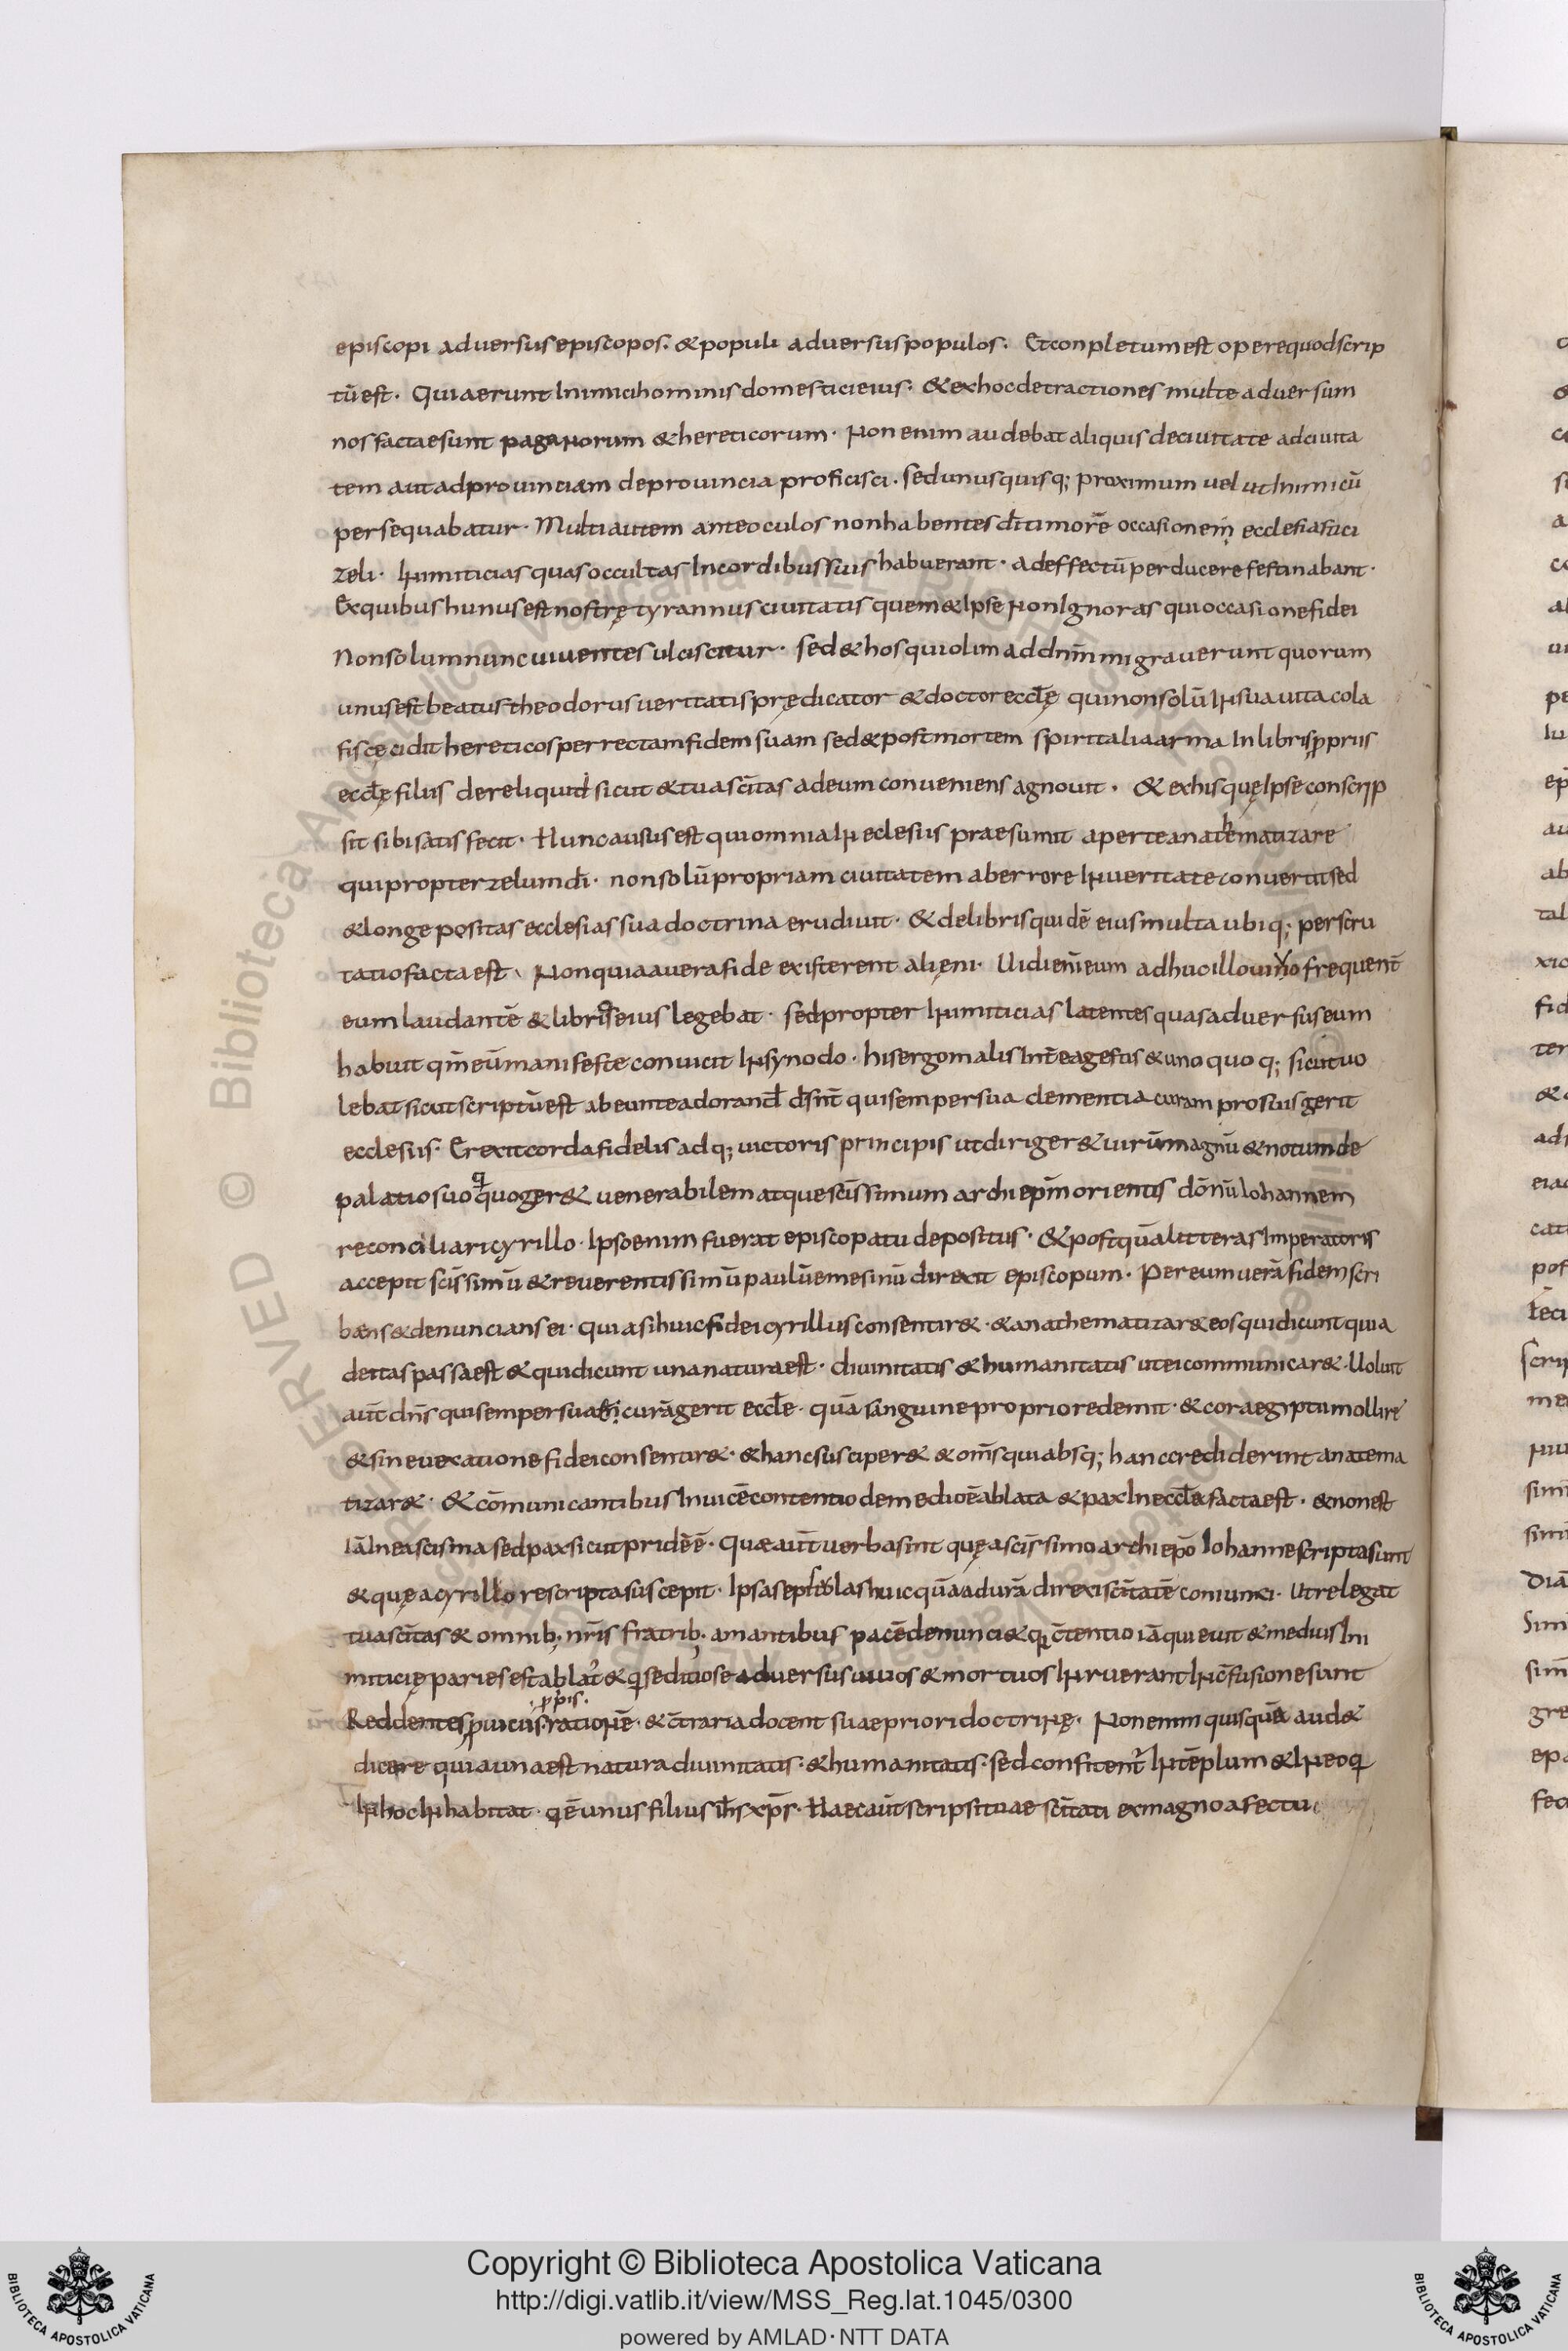 episcopi adversus episcopos. & populi adversus populos. Et conpletum est opere quod scrip
tū est. Quia erunt Inimici hominis domestici eius. & ex hoc detractiones multe adversum
nos factae sunt paganorum & hereticorum. Non enim audebat aliquis de civitate ad civita
tem aut ad provinciam de provincia proficisci. sed unusquisq; proximum vel ut Inimicū
persequabatur. Multi autem ante oculos non habentes dī timorē occasionem ecclesiastici
zeli. Inimiticias quas occultas In cordibus suis habuerant. ad effectū perducere festinabant.
Ex quibus hunus est nostrę tyrannus civitatis quem & Ipse Non Ignoras qui occasione fidei
Non solum nunc viventes ulciscitur. sed & hos qui olim ad dnm̄ migraverunt quorum
unus est beatus theodorus veritatis prędicator & doctor eccłę qui non solū In sua vita cola
fis cęcidit hereticos per rectam fidem suam sed & post mortem spiritalia arma In libris ꝓpriis
eccłę filiis dereliquid sicut & tua sc̄itas ad eum conveniens agnovit. & ex his quę Ipse conscrip
sit sibi satis fecit. Hunc ausus est qui omnia In eclesiis praesumit aperte anathematizare
qui propter zelum dī. non solū propriam civitatem ab errore In veritate convertit sed
& longe positas ecclesias sua doctrina erudivit. & de libris quidē eius multa ubiq; perscru
tatio facta est. Non quia a vera fide existerent alięni. frequent̄
eum laudantē & libris eius legebat. sed propter Inimiticias latentes quas adversus eum
habuit qm̄ eū manifeste convicit In synodo. his ergo malis Int̄ ea gestis & uno quoq; sicut vo
lebat sicut scriptū est abeunte qui semper sua clementia curam pro suis gerit
ecclesiis. Erexit corda fidelis adq; victoris principis ut diriger& virū magnū & notum de
palatio suo quoger& venerabilem atque sc̄issimum archiepm̄ orientis dōnū Iohannem
reconciliari cyrillo. Ipso enim fuerat episcopatu depositus. & postquā litteras Imperatoris
accepit sc̄issimū & reverentissimū paulū emesinū direxit episcopum. Per eum verā fidem scri
bens & denuncians ei. quia si huic fidei cyrillus consentir&. & anathematizar& eos qui dicunt quia
deitas passa est & qui dicunt una natura est. divinitatis & humanitatis ut ei communicar&. Voluit
aut̄ dn̄s qui semper curā gerit eccłe. quā sanguine proprio redemit. & cor aegyptii mollire
& sine vexatione fidei consentir&. & hanc susciper& & om̄s qui absq; hanc crediderint anatema
tizar&. & cōmunicantibus Invicē contentio de medio ē ablata & pax In eccła facta est. & non est
Iā In ea scisma sed pax sicut pridē ē. Quae aut̄ verba sint quę a sc̄issimo archiepō Iohanne scripta sunt
& quę a cyrillo rescripta suscepit. Ipsas huic direxi sc̄itatē coniunxi. Ut relegat
tua sc̄itas & omnib; nr̄is fratrib. amantibus pacē denunci& qꝫ c̄tentio iā quievit & medius Ini
miticię paries est ablat' & q seditiose adversus vivos & mortuos Inruerant In c̄fusione sunt
Reddentes ꝓ vitiis ꝓpis. rationē. & c̄traria docent suae priori doctrinę. Non enim quisquā aud&
dicere quia una est natura divinitatis. & humanitatis. sed confitent̄ In tēplum & In eo q
In hoc Inhabitat. q ē unus filius ih̄s xp̄s. Haec aut̄ scripsi tuae sc̄itati ex magno afectu
Copyright © Biblioteca Apostolica Vaticana
http://digi.vatlib.it/view/MSS_Reg.lat.1045/0300
powered by AMLAD·NTT DATA